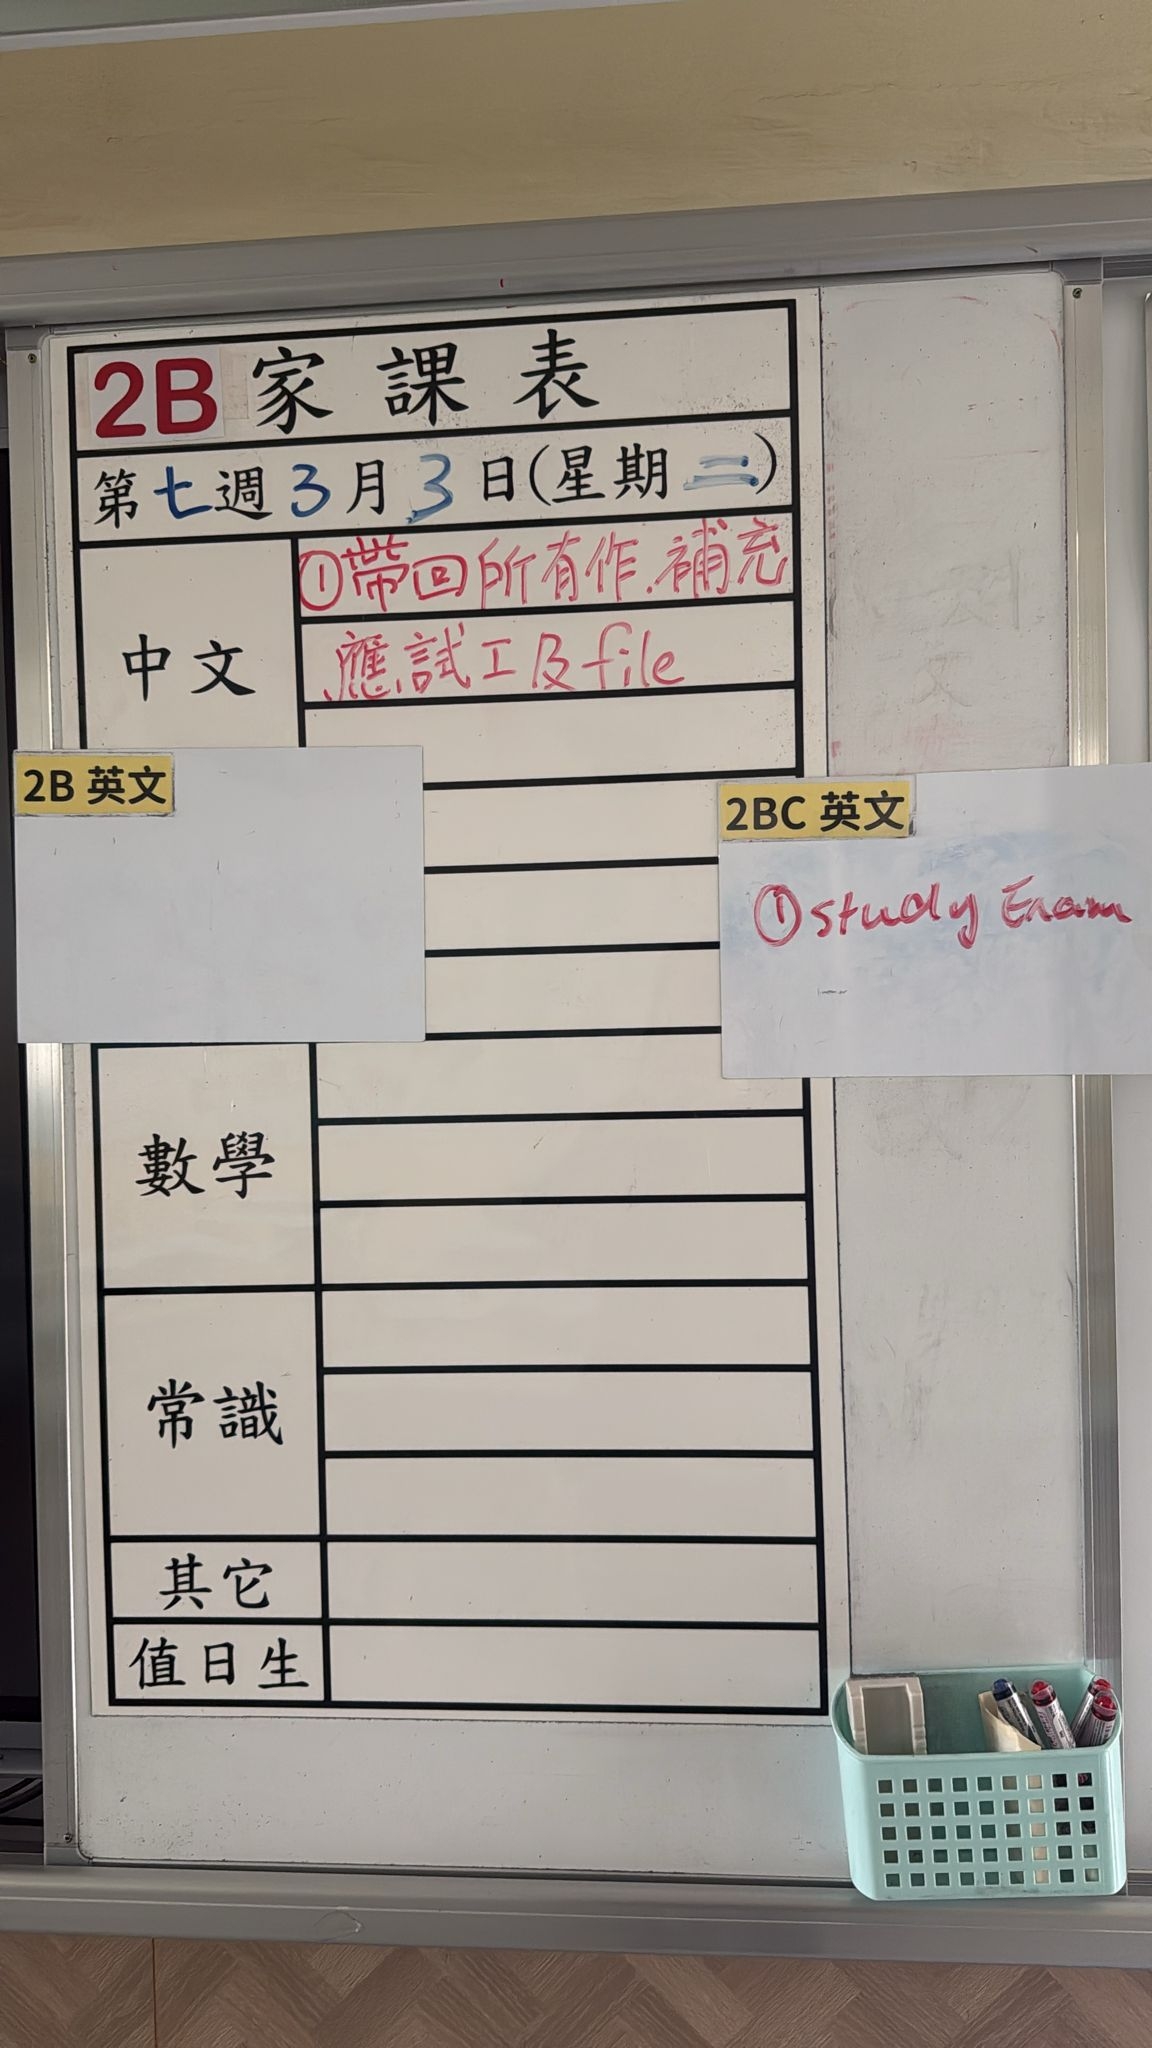 2B 家課表
第七週3月3日(星期二)
中文
①帶回所有作.補充
應試工及file
2B 英文
2BC 英文
①study Exam
數學
常識
其它
值日生